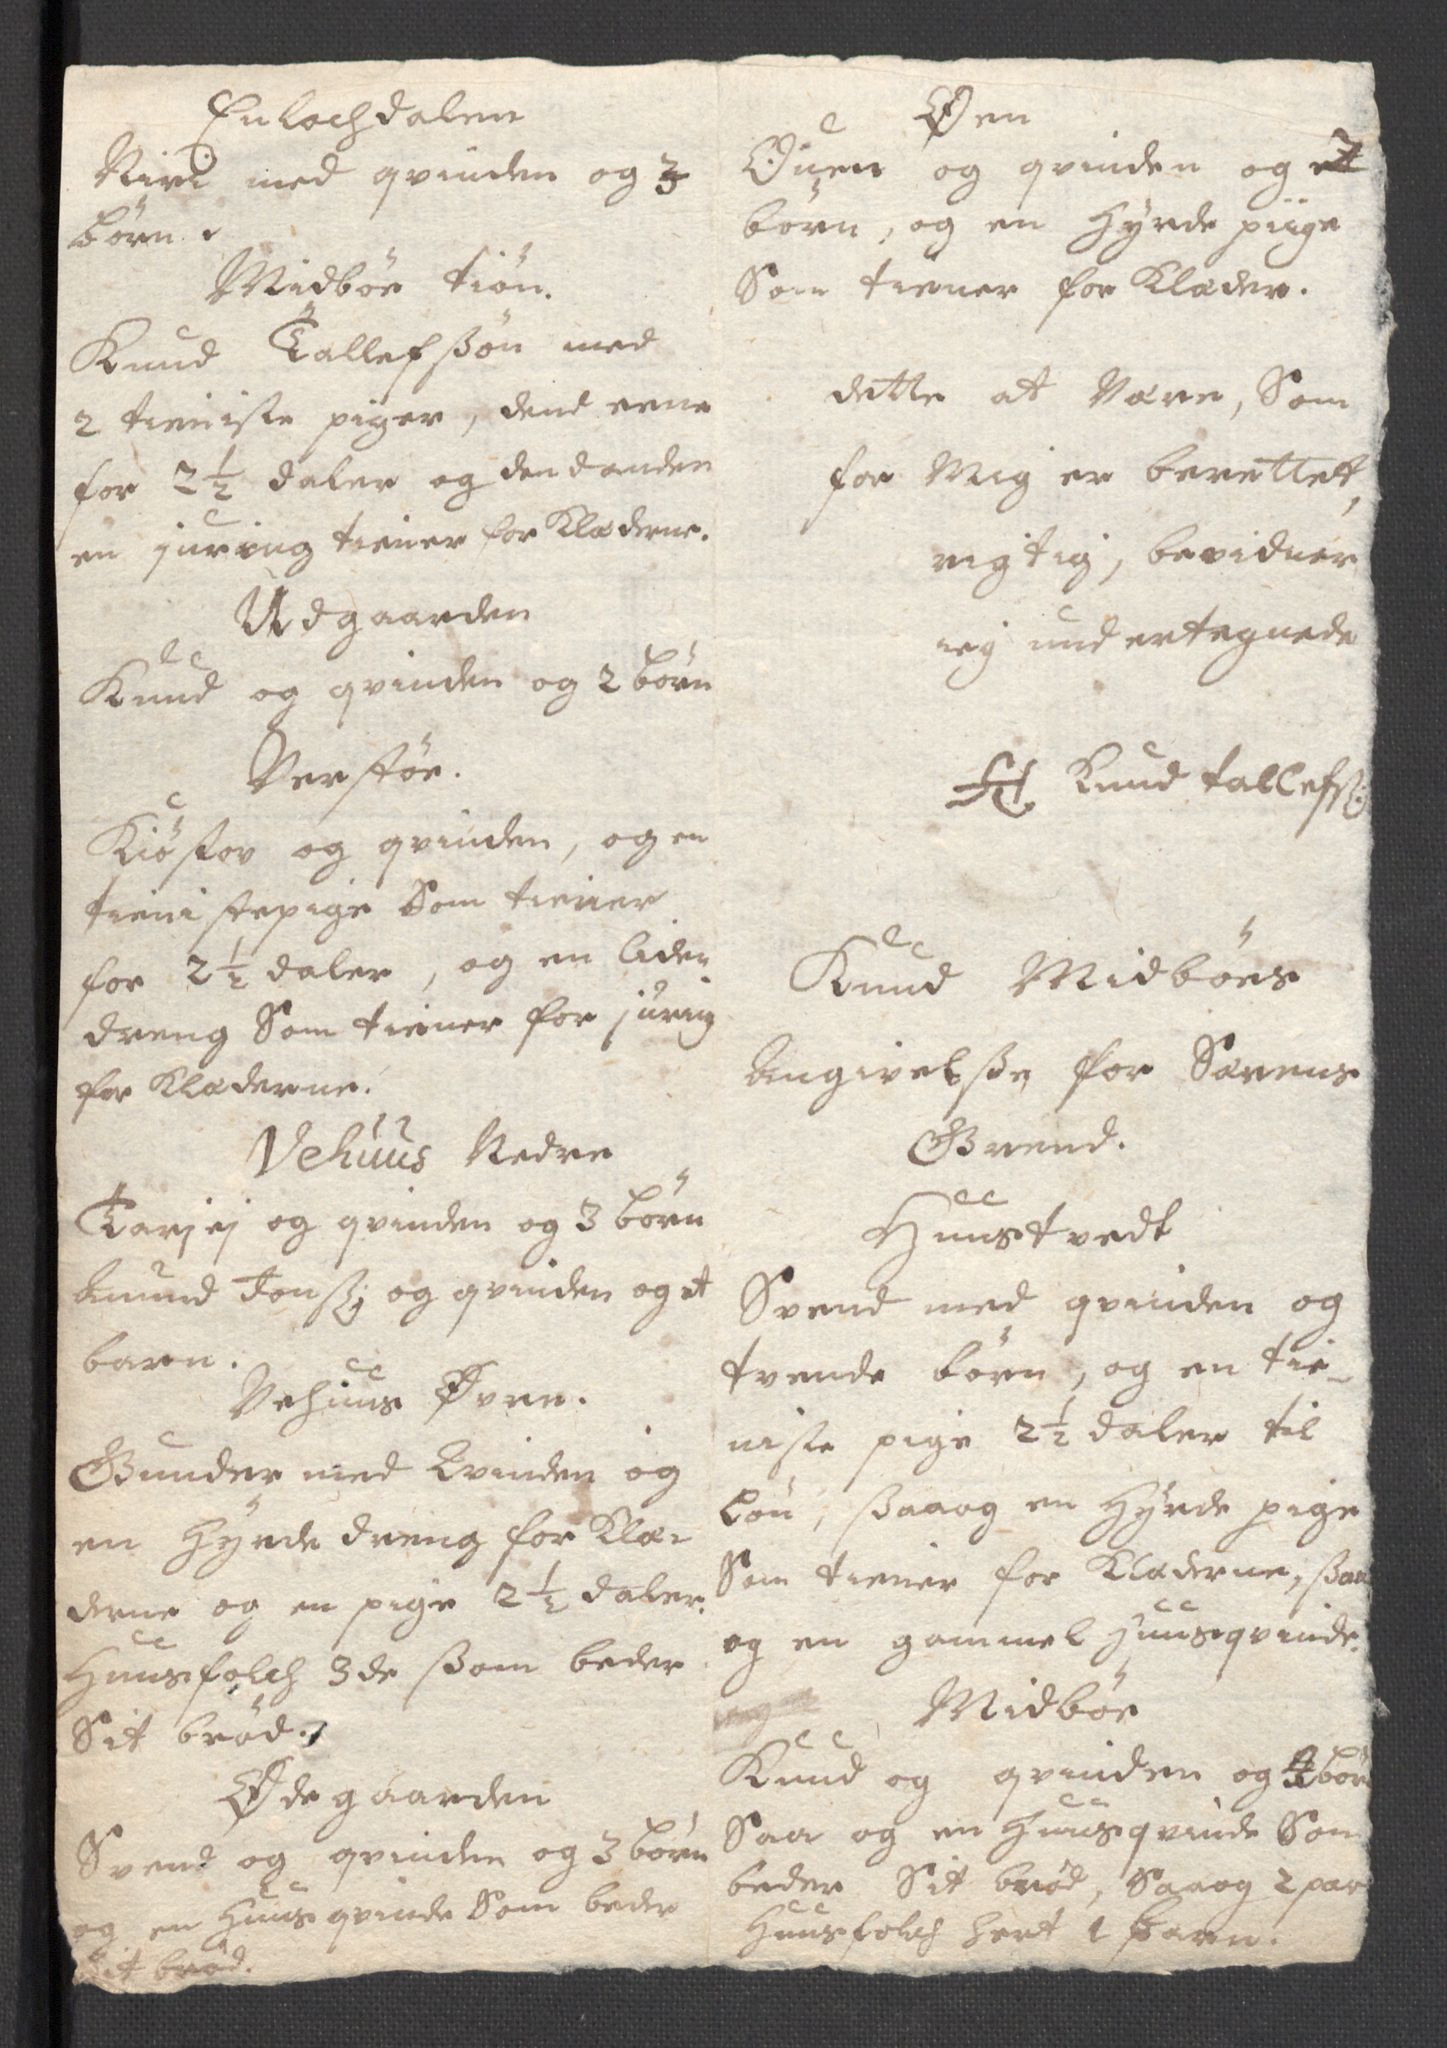 Enlochdalen
Niri med qvinden og 3
børn.
Midbøe tiøn.
Knud Tallefßøn med
2 tieniste piger, dend eene
for 2½ daler og dend anden
en juring tiener for Klæderne.
Udgaarden
Knud og qvinden og 2 børn
Verstøe.
Kiøstov og qvinden, og en
tienistepige Som tiener
for 2½ daler, og en liden
dreng Som tiener for juring
for Klæderne.
Vehuus Nedre
Tarjej og qvinden og 3 børn
Amund Jonß: og qvinden og et
barn.
Vehuus Øvre.
Gunder med Qvinden og
en Hyrde dreng for Klæ-
derne og en pige 2½ daler.
Huusfolch 3de ßom beder
Sit brød.
Ødegaarden
Svend og qvinden og 3 børn
og en Huusqvinde Som beder
Sit brød.
Øen
Ouen og qvinden og 2
børn, og en Hyrde piige
Som tiener for Klæder.
dette at være, Som
for Mig er berettet,
rigtig, bevidner
ieg undertegnede
Knud tallefß:
Knud Midbøes
Angivelße for Sævens
Grend.
Huustvedt
Svend med qvinden og
tvende børn, og en tie-
niste pige 2½ daler til
Løn, ßaaog en Hyrde pige
Som tiener for Klæderne, ßaa
og en gammel Huusqvinde.
Midbøe
Knud og qvinden og børn
Saa og en Huusqvinde Som
beder Sit brød, Saaog 2 par
Huusfolch hert 1 barn.